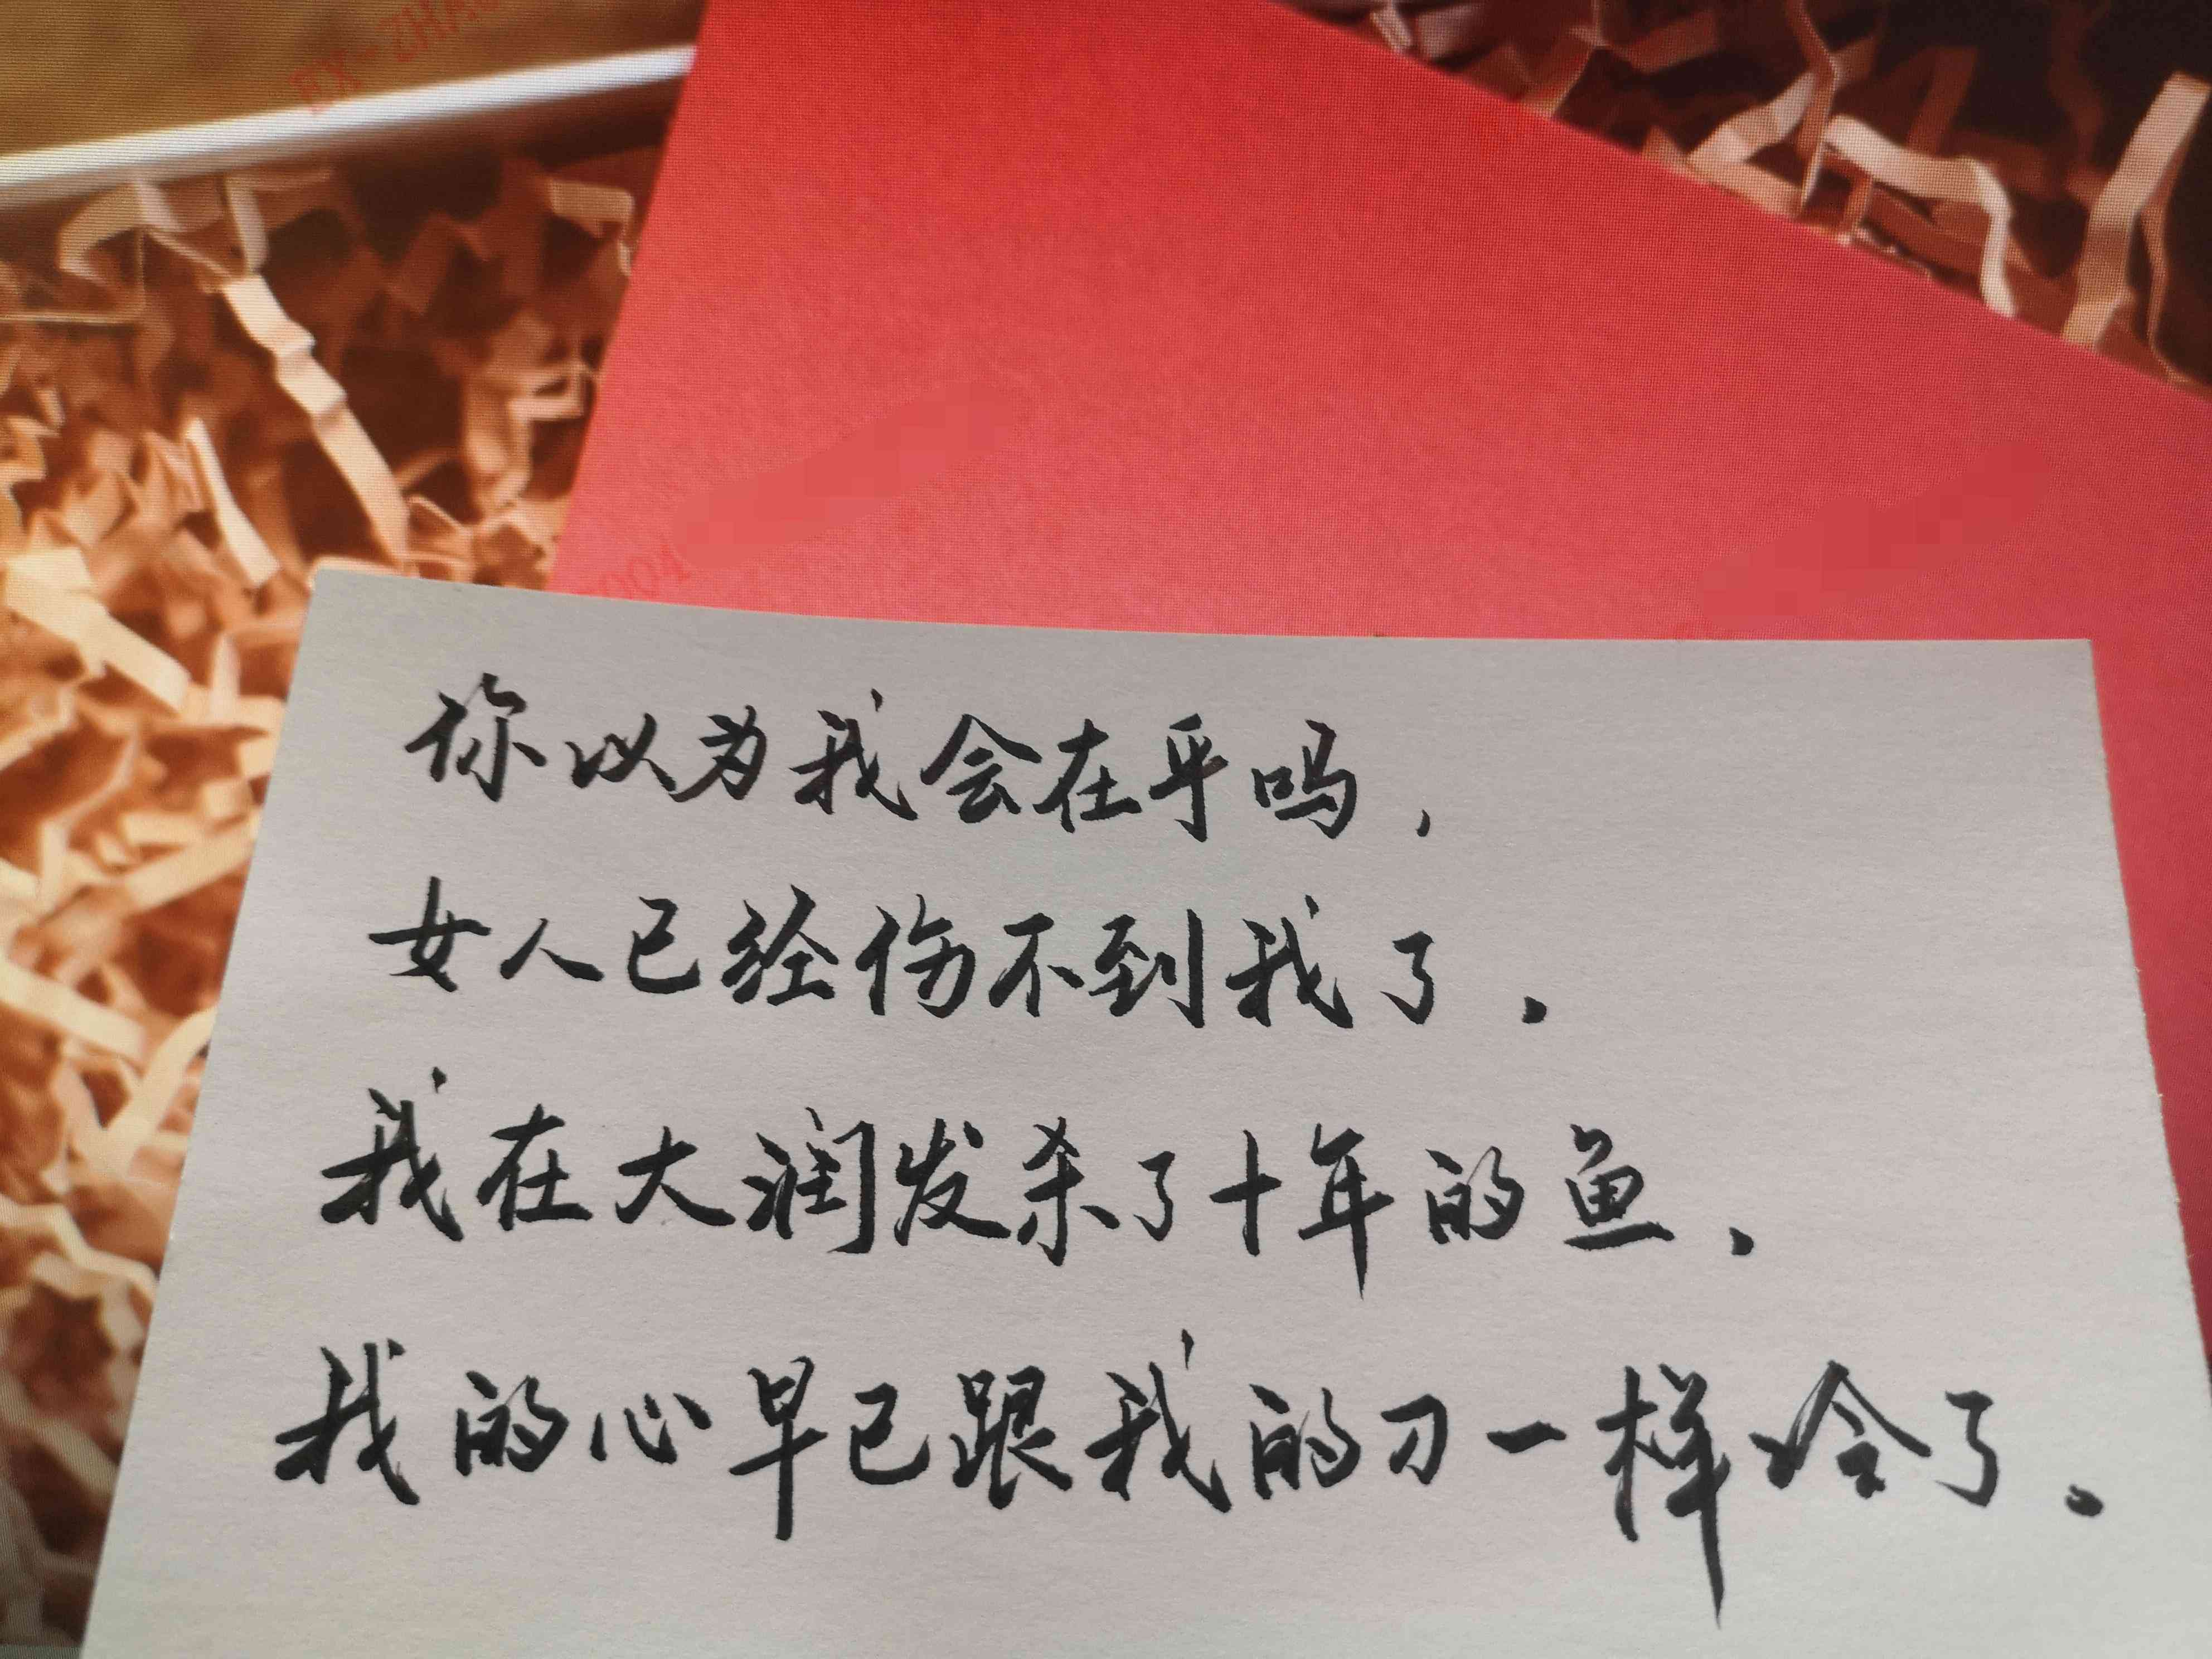 你以为我会在乎吗，
女人已经伤不到我了．
我在大润发杀了十年的鱼．
我的心早已跟我的刀一样冷了。